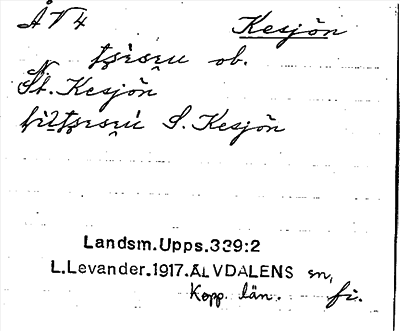 ÅV4 Kesjön
ob.
St. Kesjön
S. Kesjön
Landsm.Upps.339:2
L.Levander.1917.ÄLVDALENS sn,
Kopp. län. fi.